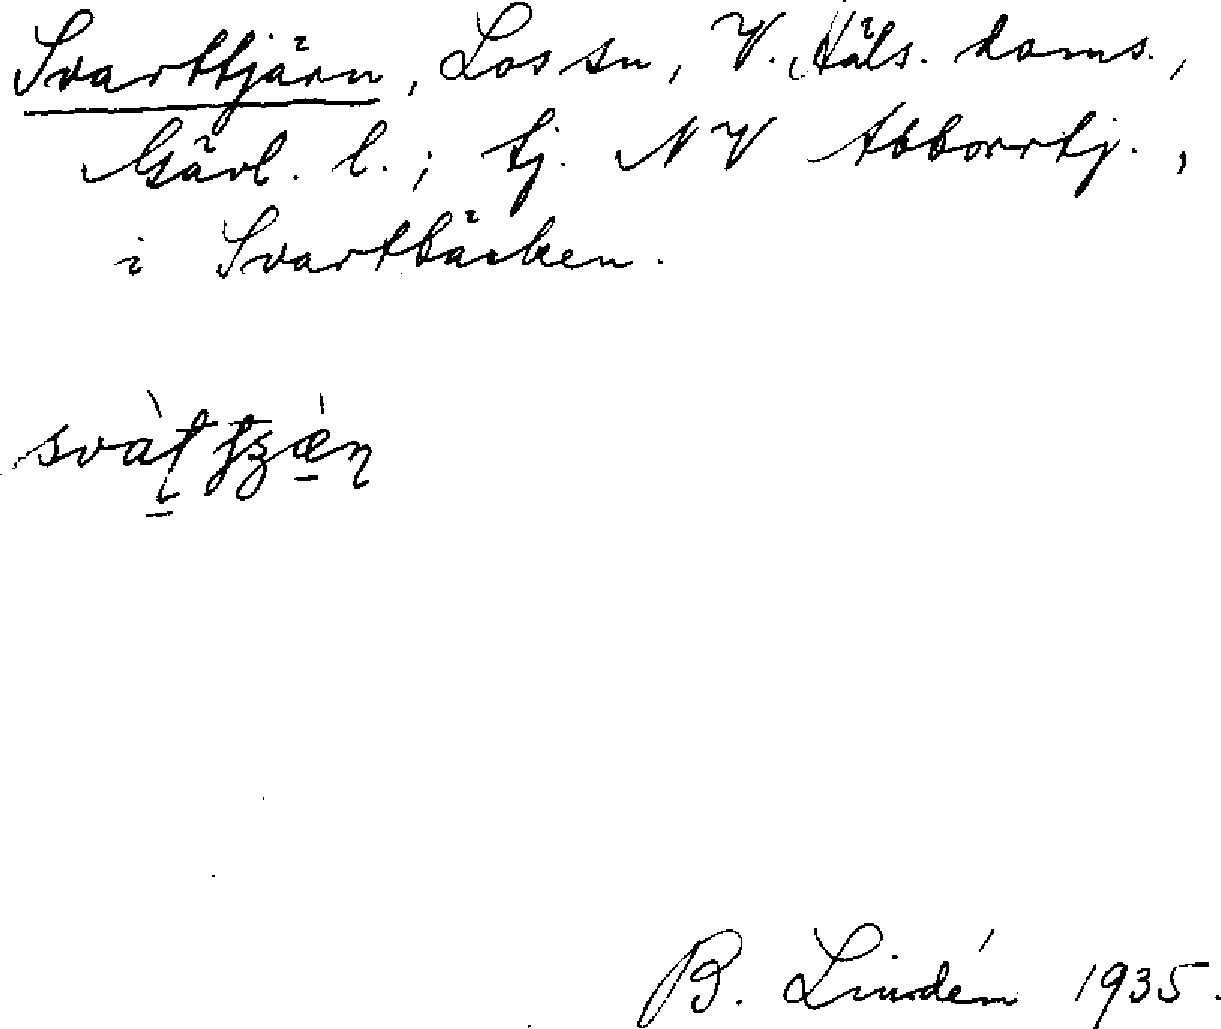 Svarttjärn, Los sn, V. Häls. doms.,
Gävl. l.; tj. NV Abborrtj.,
i Svartbäcken.
B. Lindén 1935.